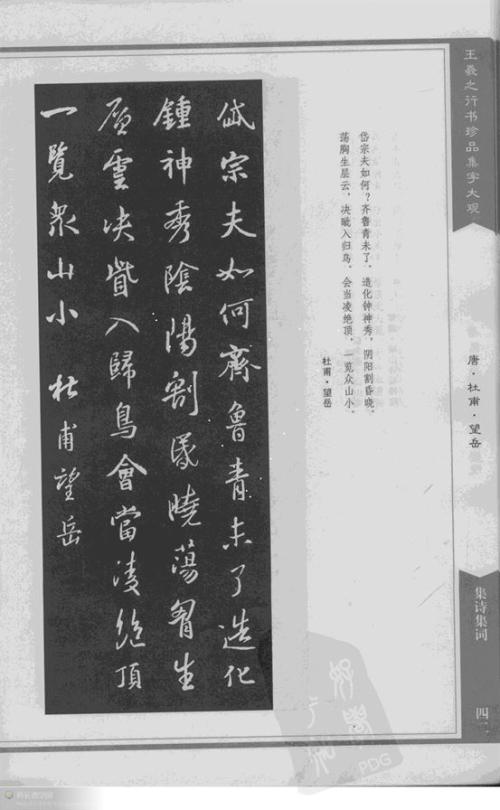 王羲之行书珍品集字大观
唐·杜甫·望岳
集诗集词
岱宗夫如何？齐鲁青未了，造化钟神秀，阴阳割昏晓，
荡胸生层云，决眦入归鸟，会当凌绝顶，一览众山小。
杜甫·望岳
岱宗夫如何齊魯青未了造化
鍾神秀陰陽割昏曉蕩胷生
層雲决眥入歸鳥會當凌絶頂
一覽衆山小 杜甫望岳
PDG